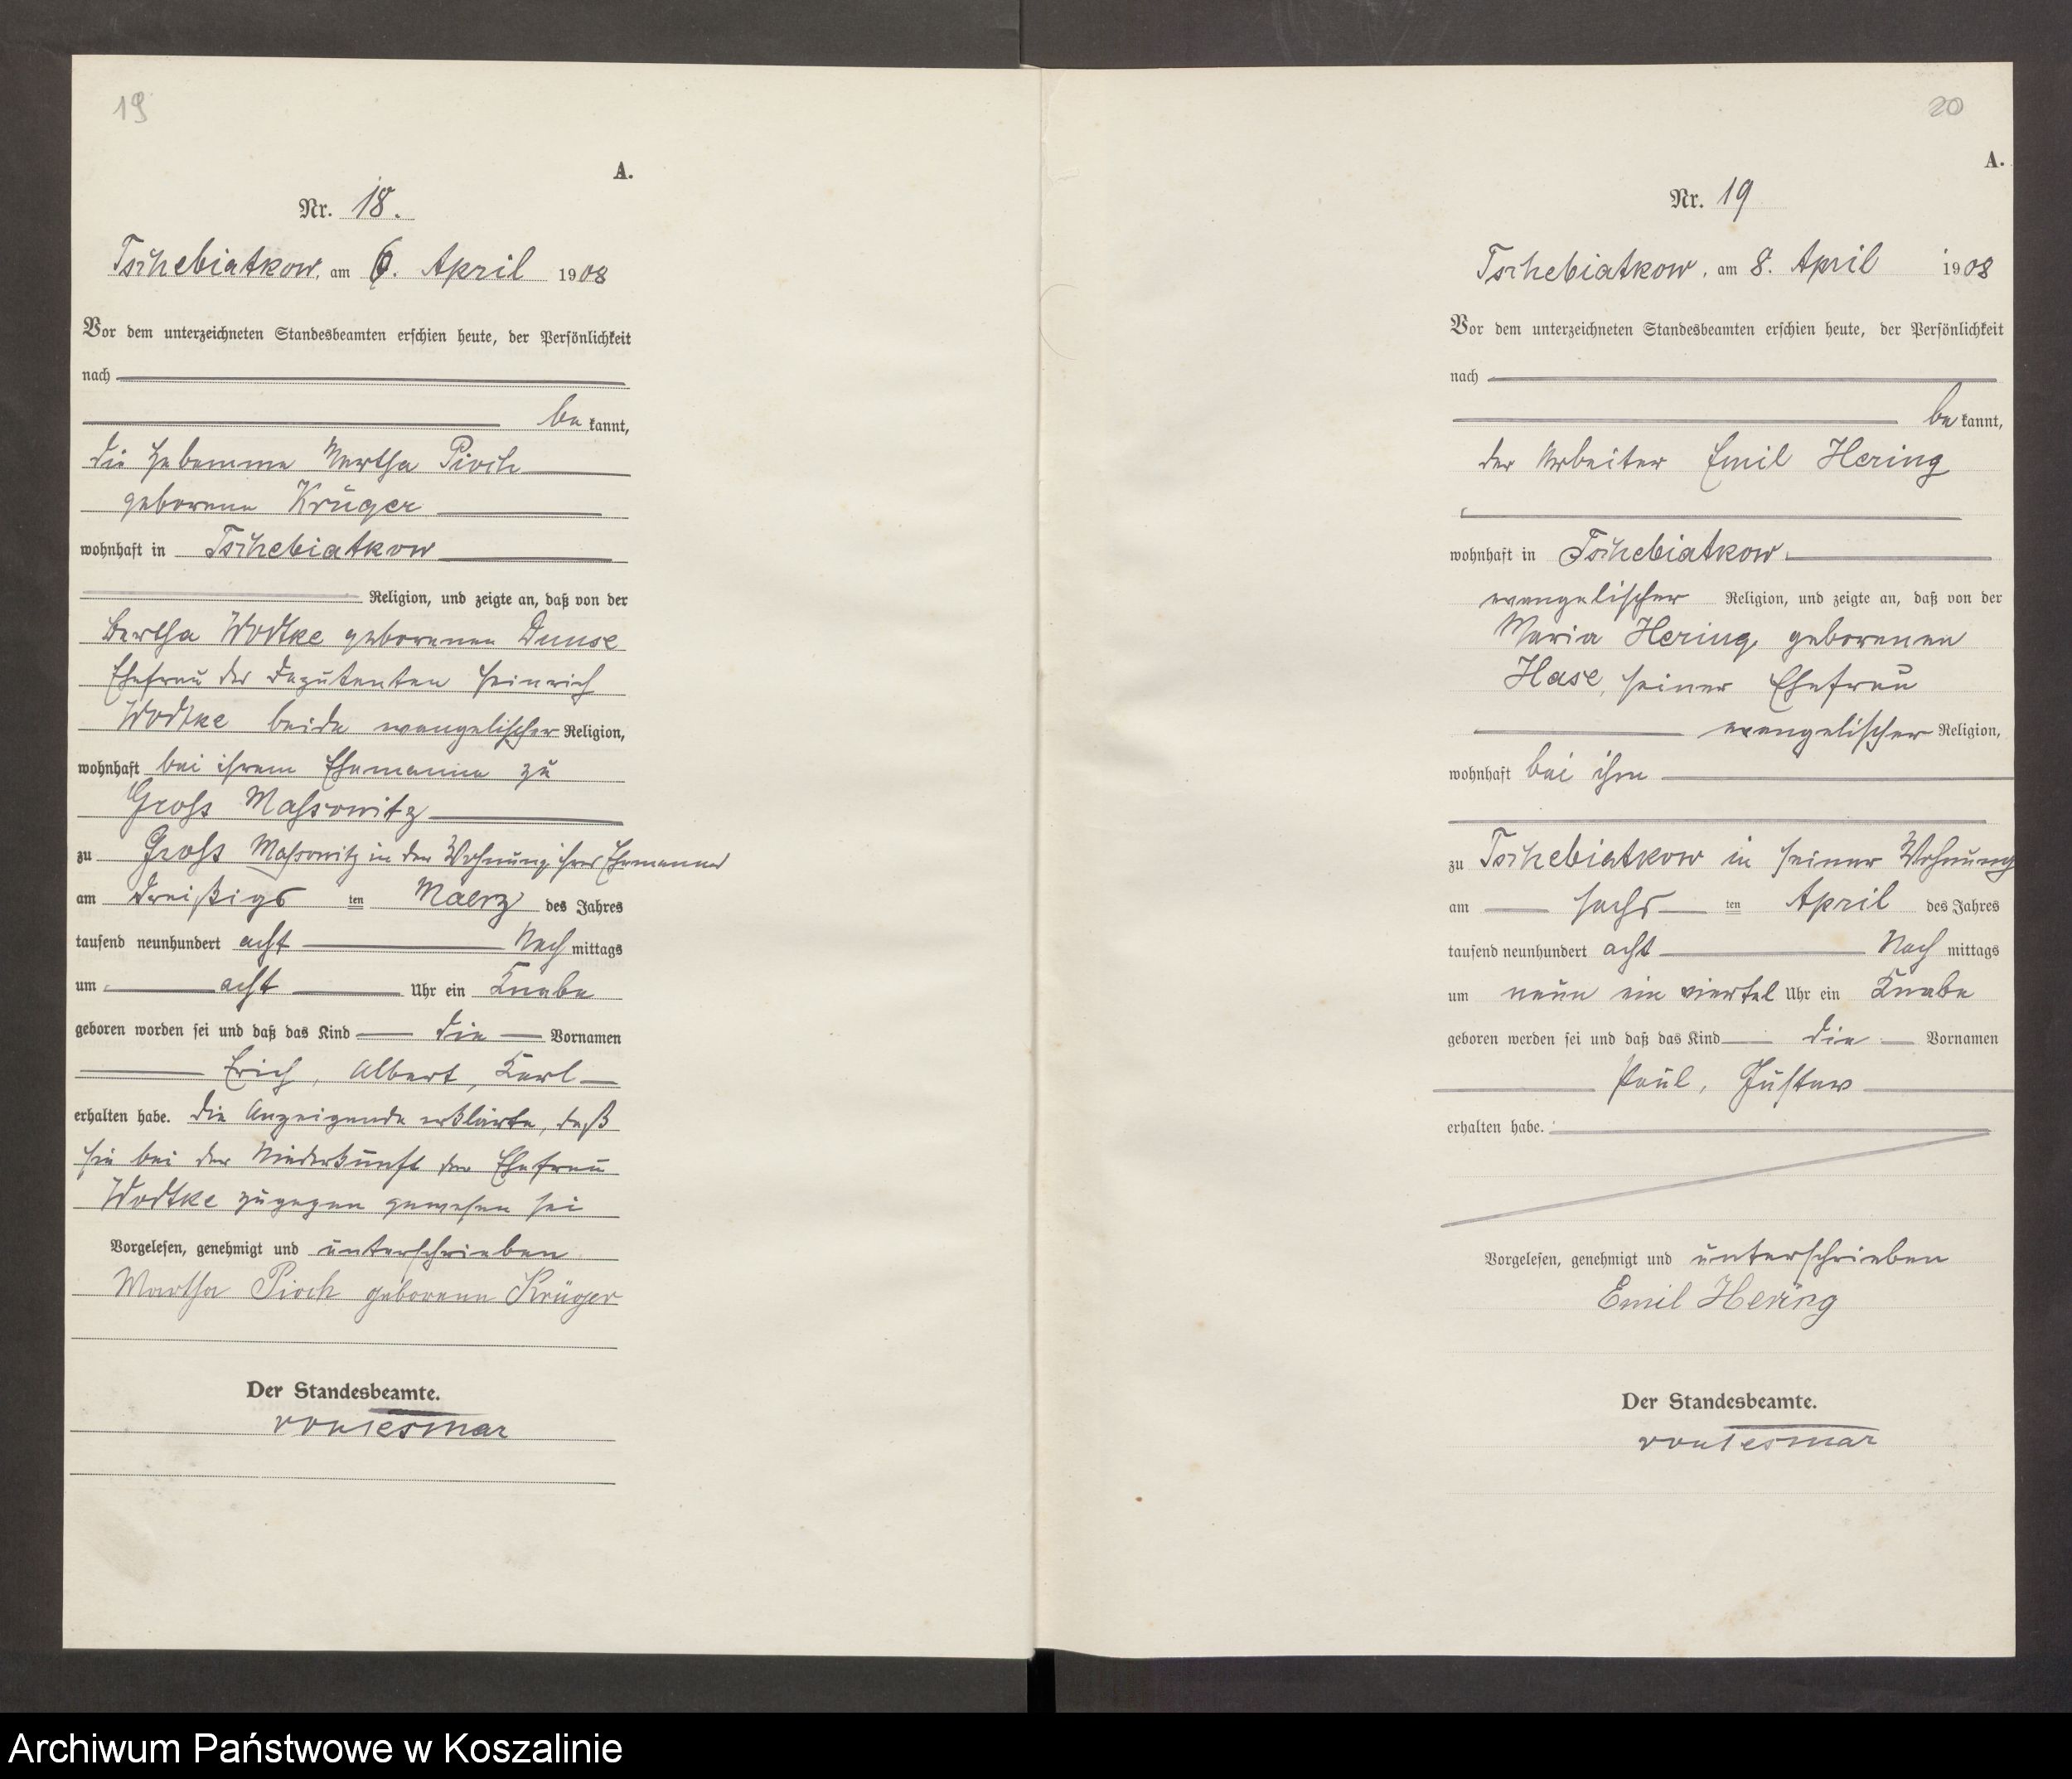 19
A.
Nr. 18.
Tschebiatkow, am 6. April 1908
Vor dem unterzeichneten Standesbeamten erschien heute, der Persönlichkeit
nach
be kannt,
die Hebamme Martha Pioch
geborene Krüger
wohnhaft in Tschebiatkow
Religion, und zeigte an, daß von der
Bertha Wodtke geborenen Dumse
Ehefrau des Deputanten Heinrich
Wodtke beide evangelischer Religion,
wohnhaft bei ihrem Ehemanne zu
Gross Massowitz
zu Gross Massowitz in der Wohnung ihres Ehemannes
am dreißigs ten Maerz des Jahres
tausend neunhundert acht Nach mittags
um acht Uhr ein Knabe
geboren worden sei und daß das Kind die Vornamen
Erich, Albert, Karl
erhalten habe. Die Anzeigende erklärte, daß
sie bei der Niederkunft der Ehefrau
Wodtke zugegen gewesen sei
Vorgelesen, genehmigt und unterschrieben
Martha Pioch geborene Krüger
Der Standesbeamte.
von Tesmar
20
A.
Nr. 19
Tschebiatkow, am 8. April 1908
Vor dem unterzeichneten Standesbeamten erschien heute, der Persönlichkeit
nach
be kannt,
der Arbeiter Emil Hering
wohnhaft in Tschebiatkow
evangelischer Religion, und zeigte an, daß von der
Maria Hering, geborenen
Hase, seiner Ehefrau
evangelischer Religion,
wohnhaft bei ihm
zu Tschebiatkow in seiner Wohnung
am sechs ten April des Jahres
tausend neunhundert acht Nach mittags
um neun ein viertel Uhr ein Knabe
geboren werden sei und daß das Kind die Vornamen
Paul, Gustav
erhalten habe.
Vorgelesen, genehmigt und unterschrieben
Emil Hering
Der Standesbeamte.
von Tesmar
Archiwum Państwowe w Koszalinie